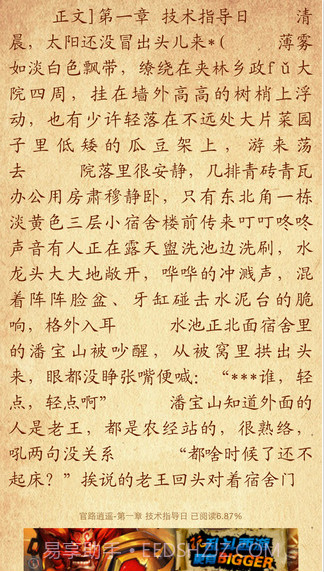 正文]第一章 技术指导日 清
晨，太阳还没冒出头儿来*( 薄雾
如淡白色飘带，缭绕在夹林乡政fǔ大
院四周，挂在墙外高高的树梢上浮
动，也有少许轻落在不远处大片菜园
子里低矮的瓜豆架上，游来荡
去 院落里很安静，几排青砖青瓦
办公用房肃穆静卧，只有东北角一栋
淡黄色三层小宿舍楼前传来叮叮咚咚
声音有人正在露天盥洗池边洗刷，水
龙头大大地敞开，哗哗的冲溅声，混
着阵阵脸盆、牙缸碰去水泥台的脆
响，格外入耳 水池正北面宿舍里
的潘宝山被吵醒，从被窝里拱出头
来，眼都没睁张嘴便喊：“***谁，轻
点，轻点啊” 潘宝山知道外面的
人是老王，都是农经站的，很熟络，
吼两句没关系 “都啥时候了还不
起床？”挨说的老王回头对着宿舍门
官路逍遥-第一章 技术指导日 已阅读6.87%
易享助手·FEDSHZJZ.COM
BIGGER